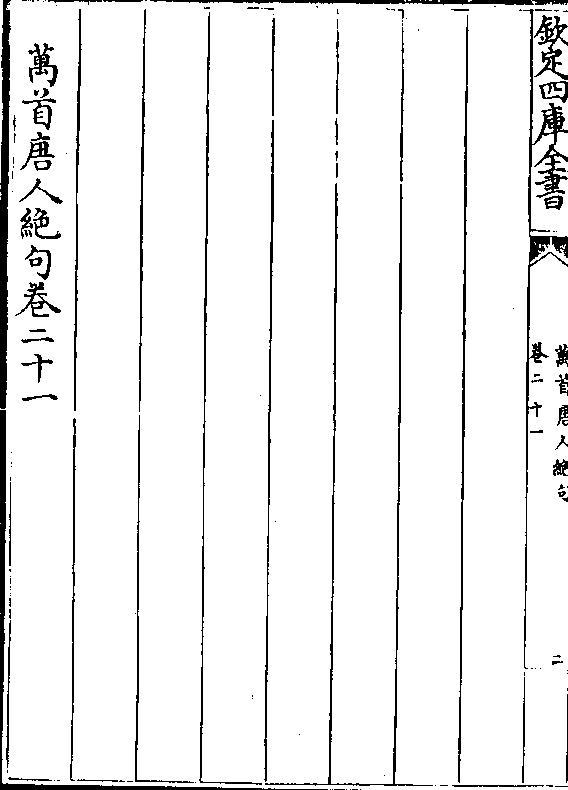 欽定四庫全書
萬首唐人絶句
卷二十一
二
萬首唐人絶句卷二十一